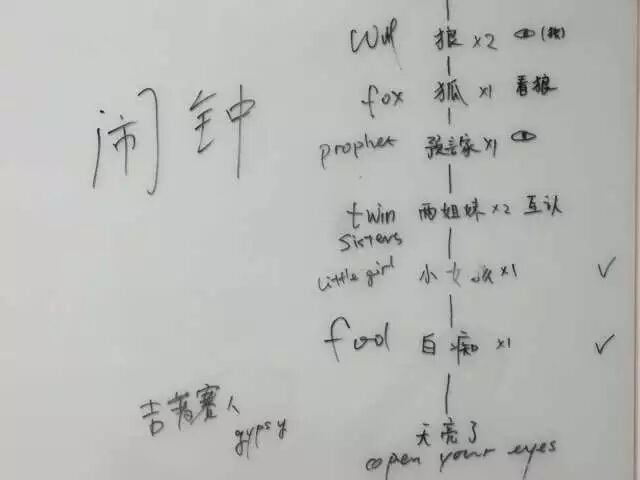 闹钟
wolf 狼 ×2 (狼)
fox 狐 ×1 看狼
prophet 预言家 ×1
twin sisters 两姐妹 ×2 互认
Little girl 小女孩 ×1 ✓
fool 白痴 ×1 ✓
吉普赛人
gypsy
天亮了
open your eyes